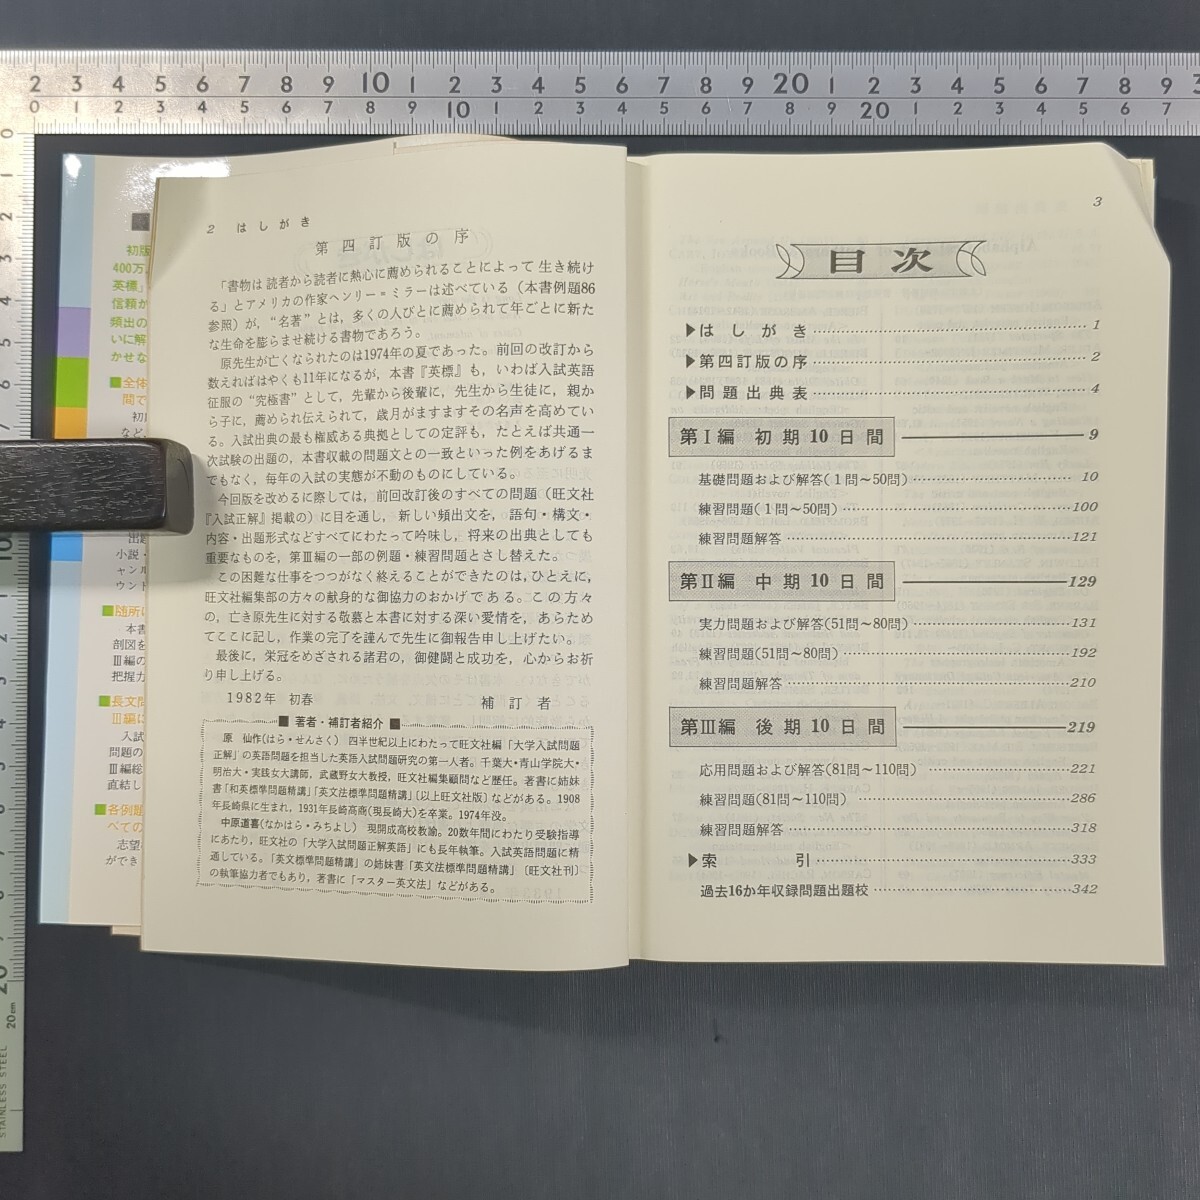 2 はしがき
第四訂版の序
「書物は読者から読者に熱心に薦められることによって生き続け
る」とアメリカの作家ヘンリー＝ミラーは述べている（本書例題86
参照）が，“名著”とは，多くの人びとに薦められて年ごとに新た
な生命を膨らませ続ける書物であろう。
原先生が亡くなられたのは1974年の夏であった。前回の改訂から
数えればはやくも11年になるが，本書『英標』も，いわば入試英語
征服の“究極書”として，先輩から後輩に，先生から生徒に，親か
ら子に，薦められ伝えられて，歳月がますますその名声を高めてい
る。入試出典の最も権威ある典拠としての定評も，たとえば共通一
次試験の出題の，本書収載の問題文との一致といった例をあげるま
でもなく，毎年の入試の実態が不動のものにしている。
今回版を改めるに際しては，前回改訂後のすべての問題（旺文社
『入試正解』掲載の）に目を通し，新しい頻出文を，語句・構文・
内容・出題形式などすべてにわたって吟味し，将来の出典としても
重要なものを，第Ⅲ編の一部の例題・練習問題とさし替えた。
この困難な仕事をつつがなく終えることができたのは，ひとえに，
旺文社編集部の方々の献身的な御協力のおかげである。この方々
の，亡き原先生に対する敬慕と本書に対する深い愛情を，あらため
てここに記し，作業の完了を謹んで先生に御報告申し上げたい。
最後に，栄冠をめざされる諸君の，御健闘と成功を，心からお祈
り申し上げる。
1982年 初春 補訂者
■ 著者・補訂者紹介 ■
原 仙作(はら・せんさく) 四半世紀以上にわたって旺文社編「大学入試問題
正解」の英語問題を担当した英語入試問題研究の第一人者。千葉大・青山学院大・
明治大・実践女大講師，武蔵野女大教授，旺文社編集顧問など歴任。著書に姉妹
書「和英標準問題精講」「英文法標準問題精講」〔以上旺文社版〕などがある。1908
年長崎県に生まれ，1931年長崎高商(現長崎大)を卒業。1974年没。
中原道喜(なかはら・みちよし) 現開成高校教諭。20数年間にわたり受験指導
にあたり，旺文社の「大学入試問題正解英語」にも長年執筆。入試英語問題に精
通している。「英文標準問題精講」の姉妹書「英文法標準問題精講」〔旺文社刊〕
の執筆協力者でもあり，著書に「マスター英文法」などがある。
3
目次
▶はしがき 1
▶第四訂版の序 2
▶問題出典表 4
第Ⅰ編 初期10日間 9
基礎問題および解答(1問〜50問) 10
練習問題(1問〜50問) 100
練習問題解答 121
第Ⅱ編 中期10日間 129
実力問題および解答(51問〜80問) 131
練習問題(51問〜80問) 192
練習問題解答 210
第Ⅲ編 後期10日間 219
応用問題および解答(81問〜110問) 221
練習問題(81問〜110問) 286
練習問題解答 318
▶索引 333
過去16か年収録問題出題校 342
初版
400万
英標」
信頼か
頻出の
いに解
かせな
■全体
間で
初
など
出題
小説・
ャンル
ウント
■随所に
本書
剖図を
Ⅲ編の
把握力
■長文問
Ⅲ編に
入試
問題の
Ⅲ編総
直結し
■各例題
べての
志望
ができ
20cm
STAINLESS STEEL